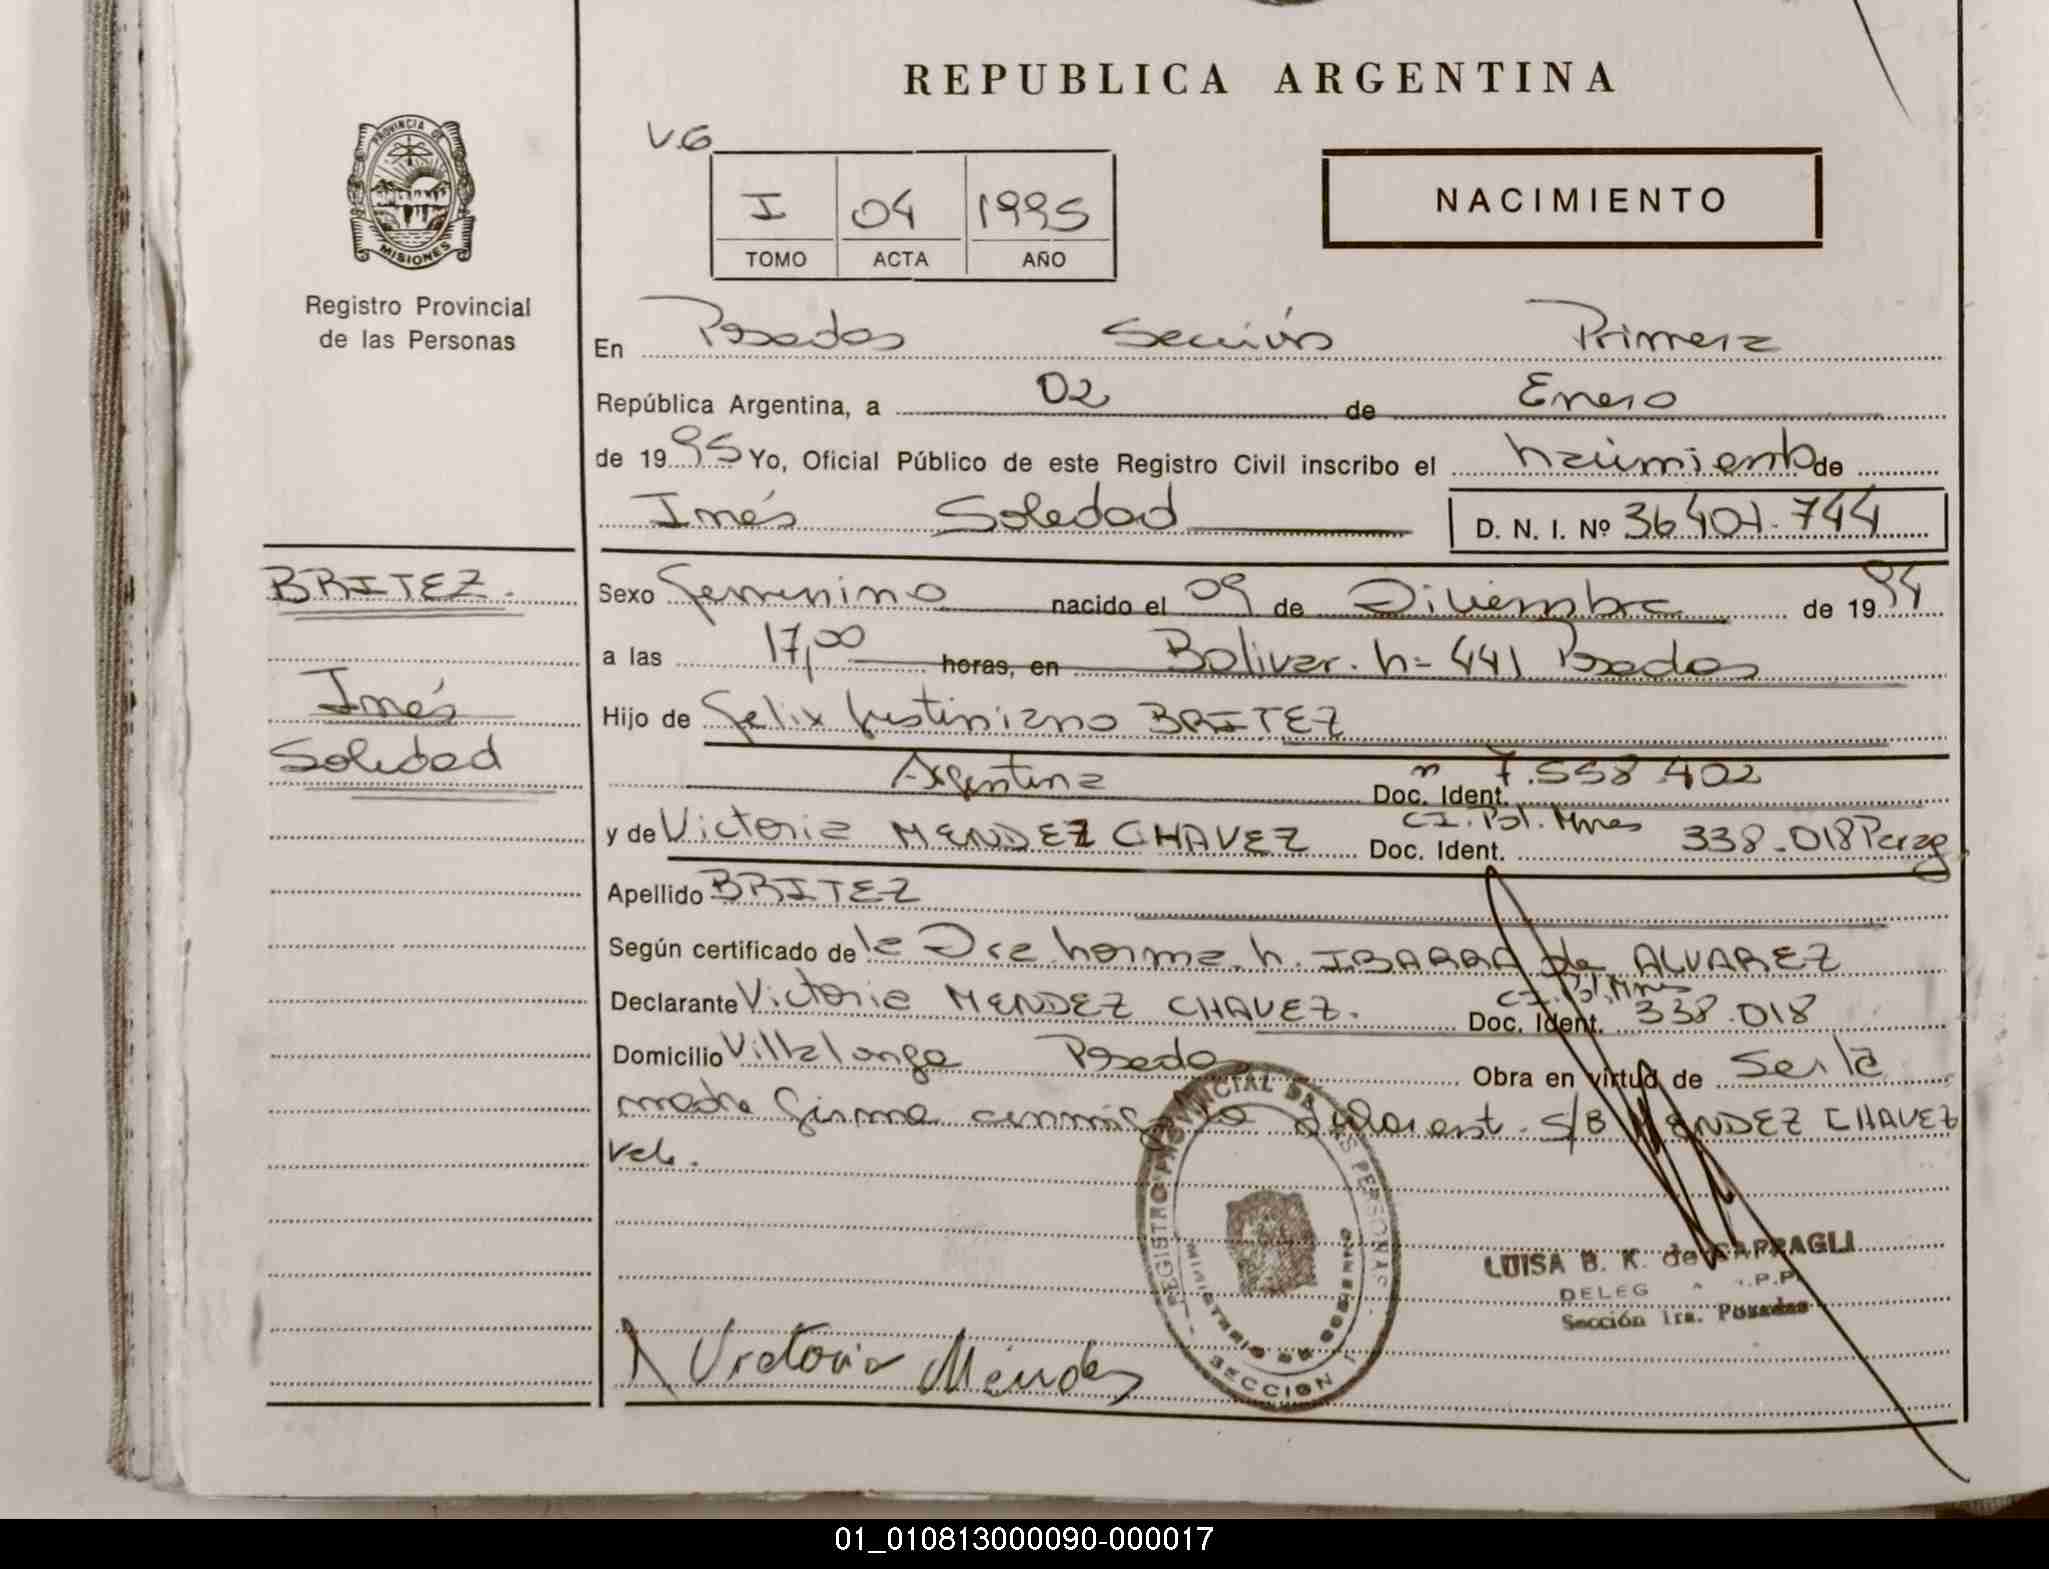 REPUBLICA ARGENTINA
V.G
I 04 1995
TOMO ACTA AÑO
NACIMIENTO
PROVINCIA DE
MISIONES
Registro Provincial
de las Personas
En Posadas Sección Primera
República Argentina, a 02 de Enero
de 1995 Yo, Oficial Público de este Registro Civil inscribo el nacimiento de
Inés Soledad D. N. I. Nº 36.401.744
BRITEZ.
Inés
Soledad
Sexo femenino nacido el 09 de Diciembre de 1994
a las 17,00 horas, en Bolivar. n= 441 Posadas
Hijo de Felix Justiniano BRITEZ
Argentina Doc. Ident. m 7.558.402
y de Victoria MENDEZ CHAVEZ Doc. Ident. C.I. Pol. Mnes 338.018 Parag
Apellido BRITEZ
Según certificado de la Dra. Norma. N. IBARRA de ALVAREZ
Declarante Victoria MENDEZ CHAVEZ. Doc. Ident. C.I. Pol. Mnes 338.018
Domicilio Villalonga Posadas Obra en virtud de Ser la
madre firma conmigo la S/B MENDEZ CHAVEZ
Vale.
REGISTRO PROVINCIAL DE LAS PERSONAS
MINISTERIO DE GOBIERNO
SECCION 1
LUISA B. K. de
DELEG
Sección 1ra. Posadas
Victoria Méndez
01_010813000090-000017